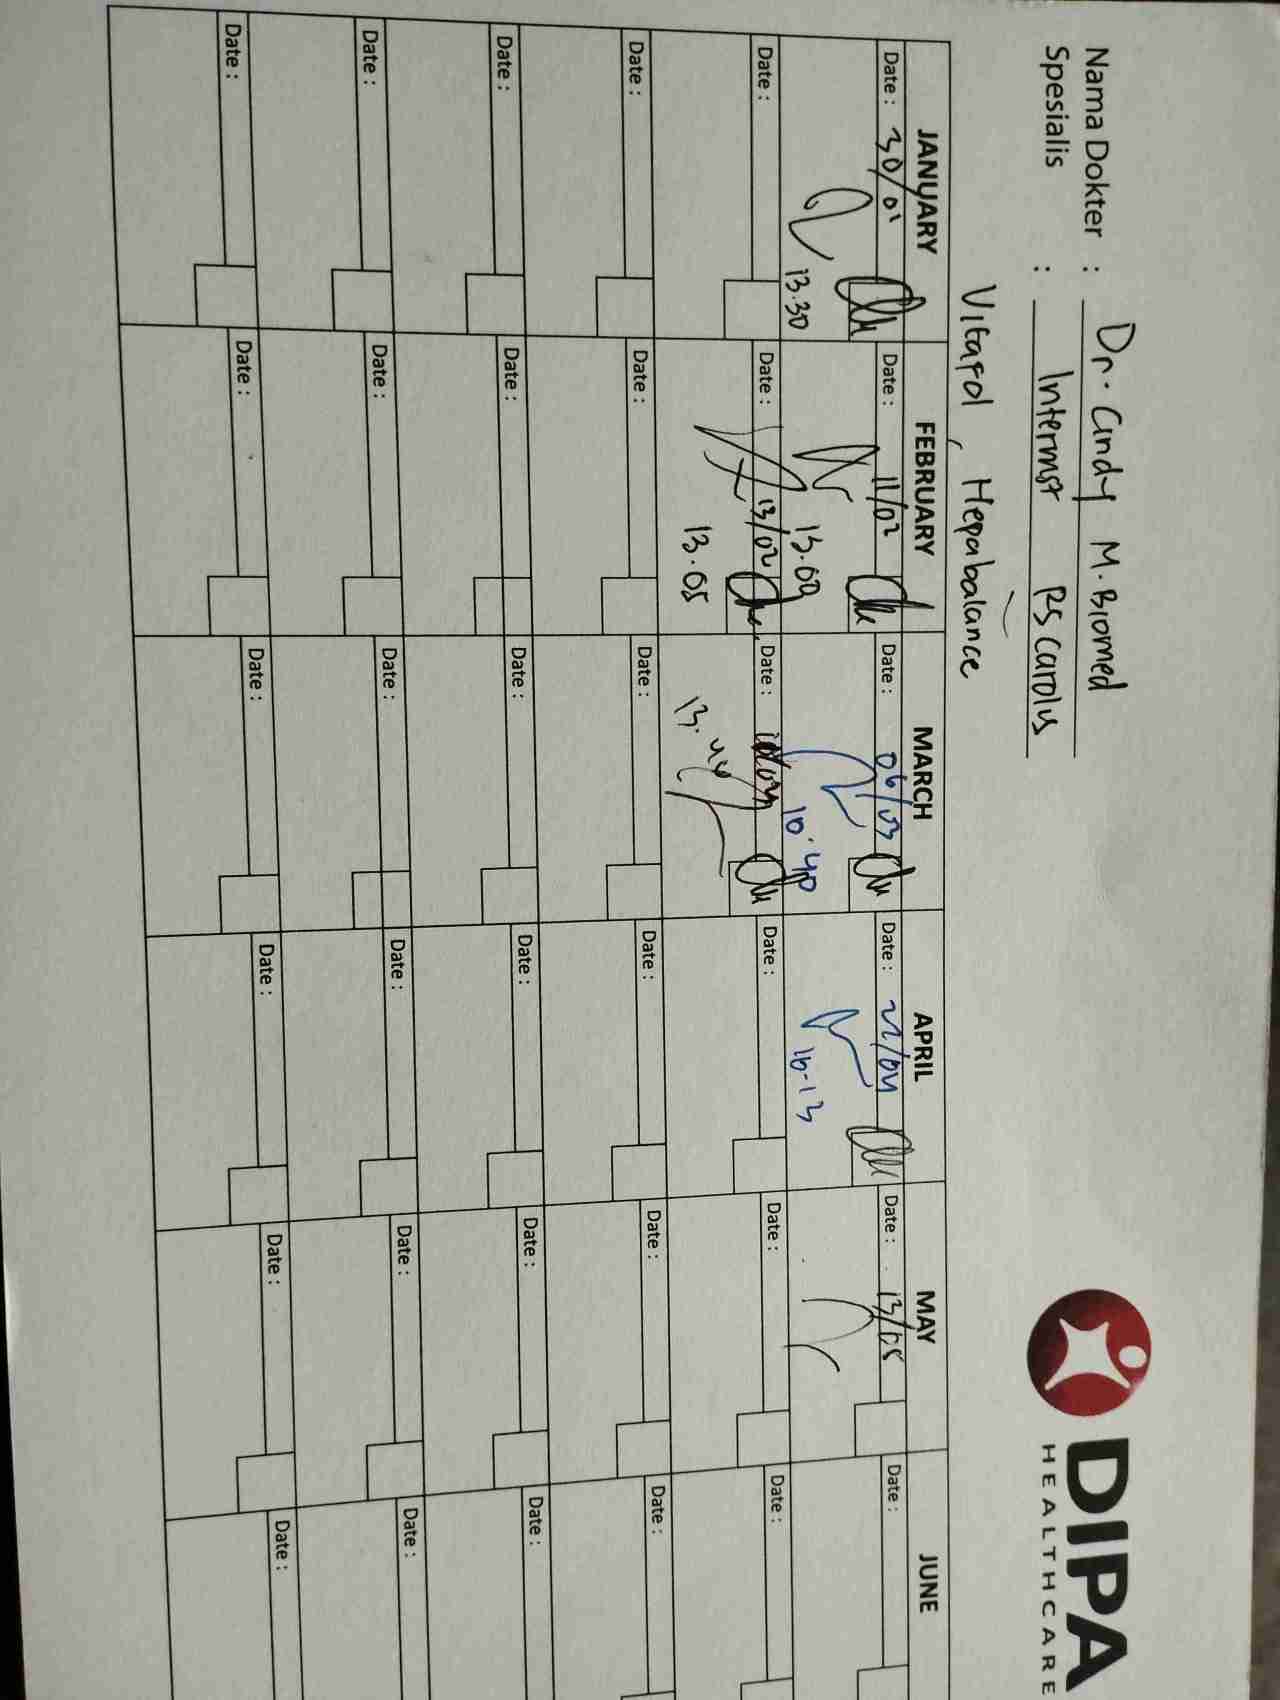 Nama Dokter : Dr. Cindy M. Biomed
Spesialis : Internist RS Carolus
DIPA
HEALTHCARE
Vitafol, Hepabalance
JANUARY FEBRUARY MARCH APRIL MAY JUNE
Date : 30/01 Date : 11/02 Date : 06/03 Date : 22/04 Date : 13/05 Date :
13.30 13.00 10.40 16.13
Date : Date : 13/02 Date : Date : Date : Date :
13.05 13.44
Date : Date : Date : Date : Date : Date :
Date : Date : Date : Date : Date : Date :
Date : Date : Date : Date : Date : Date :
Date : Date : Date : Date : Date : Date :